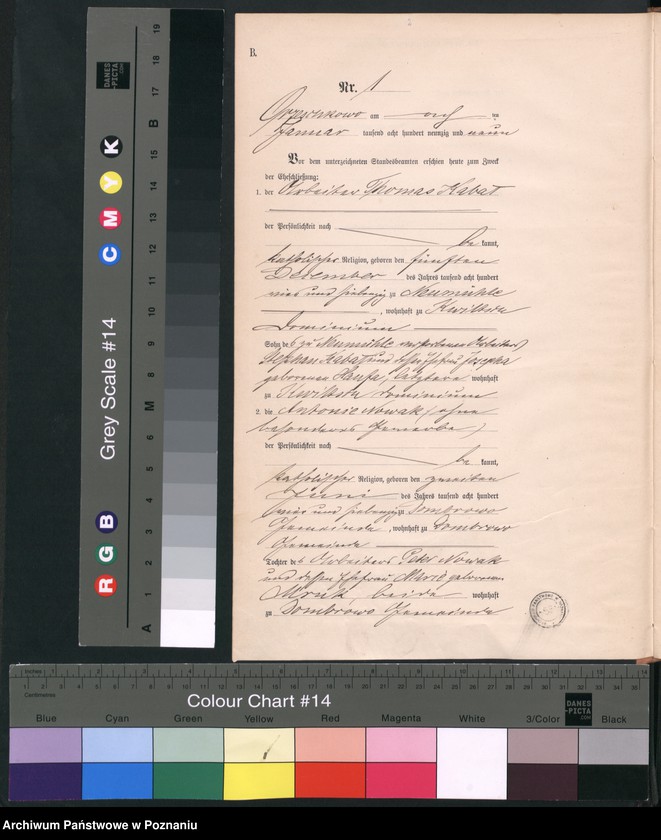 B.
Nr. 1
am acht ten
Januar tausend acht hundert neunzig und neun
Vor dem unterzeichneten Standesbeamten erschien heute zum Zweck
der Eheschließung:
1. der Arbeiter Thomas Kabat
der Persönlichkeit nach
be kannt,
katholischer Religion, geboren den fünften
Dezember des Jahres tausend acht hundert
vier und siebenzig zu Neumühle
, wohnhaft zu Kwiltsch
Dominium
Sohn des zu Neumühle verstorbenen Arbeiters
Stephan Kabat und Ehefrau Josepha
geborenen letztere wohnhaft
zu Kwiltsch Dominium
2. die Antonie Nowak (ohne
besonderes Gewerbe)
der Persönlichkeit nach
be kannt,
katholischer Religion, geboren den zweiten
Juni des Jahres tausend acht hundert
vier und siebenzig zu Dombrowo
Gemeinde, wohnhaft zu Dombrowo
Gemeinde
Tochter des Arbeiters Peter Nowak
und dessen Ehefrau Marie geborenen
Mruk, beide wohnhaft
zu Dombrowo Gemeinde
Grey Scale #14
R G B C M Y K
A 1 2 3 4 5 6 M 8 9 10 11 12 13 14 15 B 17 18 19
DANES-PICTA.COM
Inches
Centimetres
Colour Chart #14
DANES-PICTA.COM
Blue Cyan Green Yellow Red Magenta White 3/Color Black
Archiwum Państwowe w Poznaniu